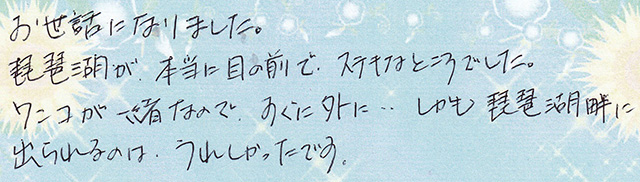 お世話になりました。
琵琶湖が、本当に目の前で、ステキなところでした。
ワンコが一緒なので、すぐに外に… しかも 琵琶湖畔に
出られるのは、うれしかったです。